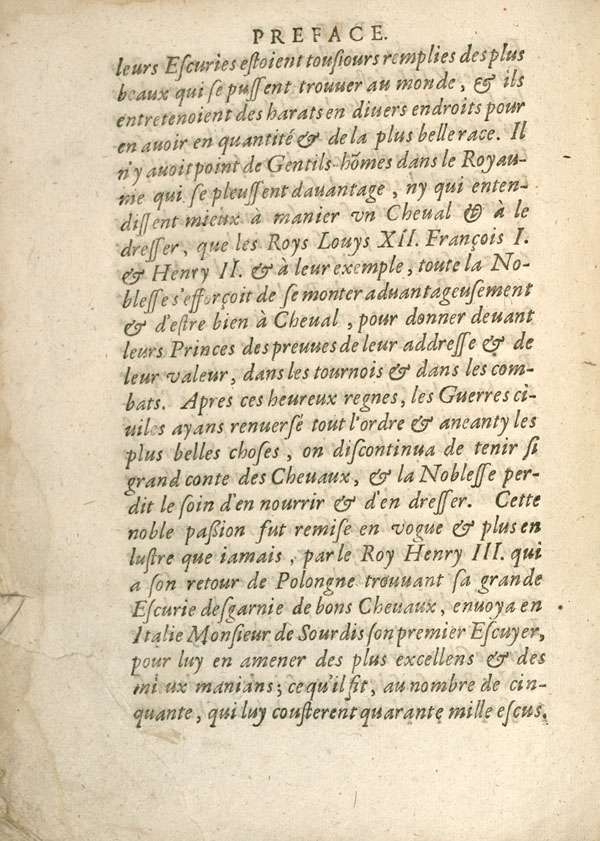 PREFACE.
leurs Eſcuries eſtoient touſiours remplies des plus
beaux qui ſe puſſent trouuer au monde, & ils
entretenoient des harats en diuers endroits pour
en auoir en quantité & de la plus belle race. Il
n'y auoit point de Gentils-hõmes dans le Royau-
me qui ſe pleuſſent dauantage, ny qui enten-
diſſent mieux à manier vn Cheual & à le
dreſſer, que les Roys Louys XII. François I.
& Henry II. & à leur exemple, toute la No-
bleſſe s'efforçoit de ſe monter aduantageuſement
& d'eſtre bien à Cheual, pour donner deuant
leurs Princes des preuues de leur addreſſe & de
leur valeur, dans les tournois & dans les com-
bats. Apres ces heureux regnes, les Guerres ci-
uiles ayans renuerſé tout l'ordre & aneanty les
plus belles choſes, on diſcontinua de tenir ſi
grand conte des Cheuaux, & la Nobleſſe per-
dit le ſoin d'en nourrir & d'en dreſſer. Cette
noble paßion fut remiſe en vogue & plus en
luſtre que iamais, par le Roy Henry III. qui
a ſon retour de Polongne trouuant ſa grande
Eſcurie deſgarnie de bons Cheuaux, enuoya en
Italie Monſieur de Sourdis ſon premier Eſcuyer,
pour luy en amener des plus excellens & des
mi ux manians; ce qu'il fit, au nombre de cin-
quante, qui luy couſterent quarante mille eſcus.